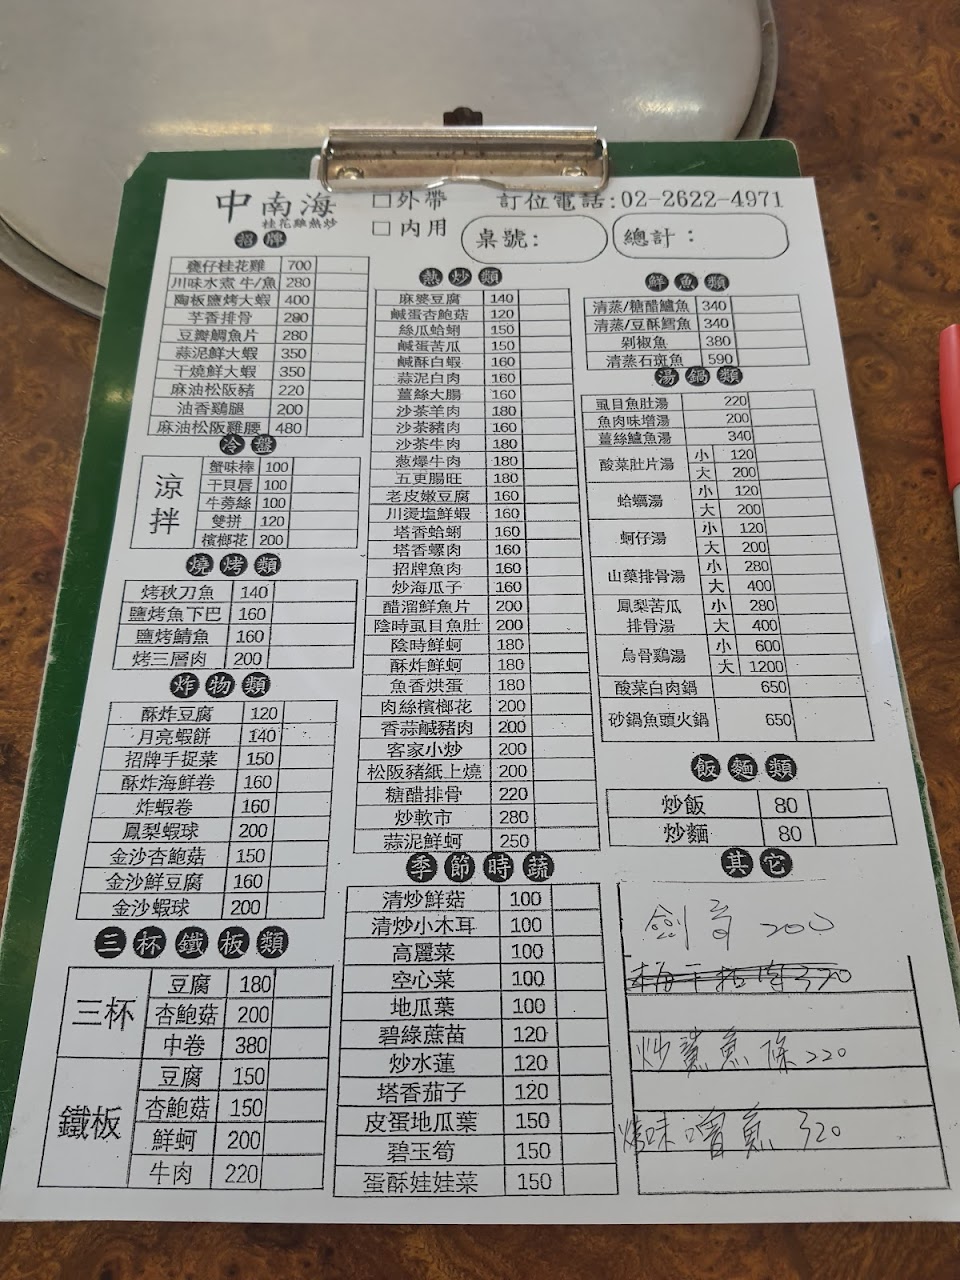 中南海
桂花雞熱炒
□外帶
□內用
訂位電話:02-2622-4971
桌號:
總計:
招牌
甕仔桂花雞 700
川味水煮 牛/魚 280
陶板鹽烤大蝦 400
芋香排骨 280
豆瓣鯛魚片 280
蒜泥鮮大蝦 350
干燒鮮大蝦 350
麻油松阪豬 220
油香鷄腿 200
麻油松阪雞腰 480
冷盤
涼拌
蟹味棒 100
干貝唇 100
牛蒡絲 100
雙拼 120
檳榔花 200
燒烤類
烤秋刀魚 140
鹽烤魚下巴 160
鹽烤鯖魚 160
烤三層肉 200
炸物類
酥炸豆腐 120
月亮蝦餅 140
招牌手捉菜 150
酥炸海鮮卷 160
炸蝦卷 160
鳳梨蝦球 200
金沙杏鮑菇 150
金沙鮮豆腐 160
金沙蝦球 200
三杯鐵板類
三杯
豆腐 180
杏鮑菇 200
中卷 380
鐵板
豆腐 150
杏鮑菇 150
鮮蚵 200
牛肉 220
熱炒類
麻婆豆腐 140
鹹蛋杏鮑菇 120
絲瓜蛤蜊 150
鹹蛋苦瓜 150
鹹酥白蝦 160
蒜泥白肉 160
薑絲大腸 160
沙茶羊肉 180
沙茶豬肉 160
沙茶牛肉 180
蔥爆牛肉 180
五更腸旺 180
老皮嫩豆腐 160
川燙塩鮮蝦 160
塔香蛤蜊 160
塔香螺肉 160
招牌魚肉 160
炒海瓜子 160
醋溜鮮魚片 200
陰時虱目魚肚 200
陰時鮮蚵 180
酥炸鮮蚵 180
魚香烘蛋 180
肉絲檳榔花 200
香蒜鹹豬肉 200
客家小炒 200
松阪豬紙上燒 200
糖醋排骨 220
炒軟巿 280
蒜泥鮮蚵 250
季節時蔬
清炒鮮菇 100
清炒小木耳 100
高麗菜 100
空心菜 100
地瓜葉 100
碧綠蔗苗 120
炒水蓮 120
塔香茄子 120
皮蛋地瓜葉 150
碧玉筍 150
蛋酥娃娃菜 150
鮮魚類
清蒸/糖醋鱸魚 340
清蒸/豆酥鱈魚 340
剁椒魚 380
清蒸石斑魚 590
湯鍋類
虱目魚肚湯 220
魚肉味增湯 200
薑絲鱸魚湯 340
酸菜肚片湯 小 120
大 200
蛤蠣湯 小 120
大 200
蚵仔湯 小 120
大 200
山藥排骨湯 小 280
大 400
鳳梨苦瓜排骨湯 小 280
大 400
烏骨鷄湯 小 600
大 1200
酸菜白肉鍋 650
砂鍋魚頭火鍋 650
飯麵類
炒飯 80
炒麵 80
其它
劍筍 200
炒鯊魚條 220
魚 320